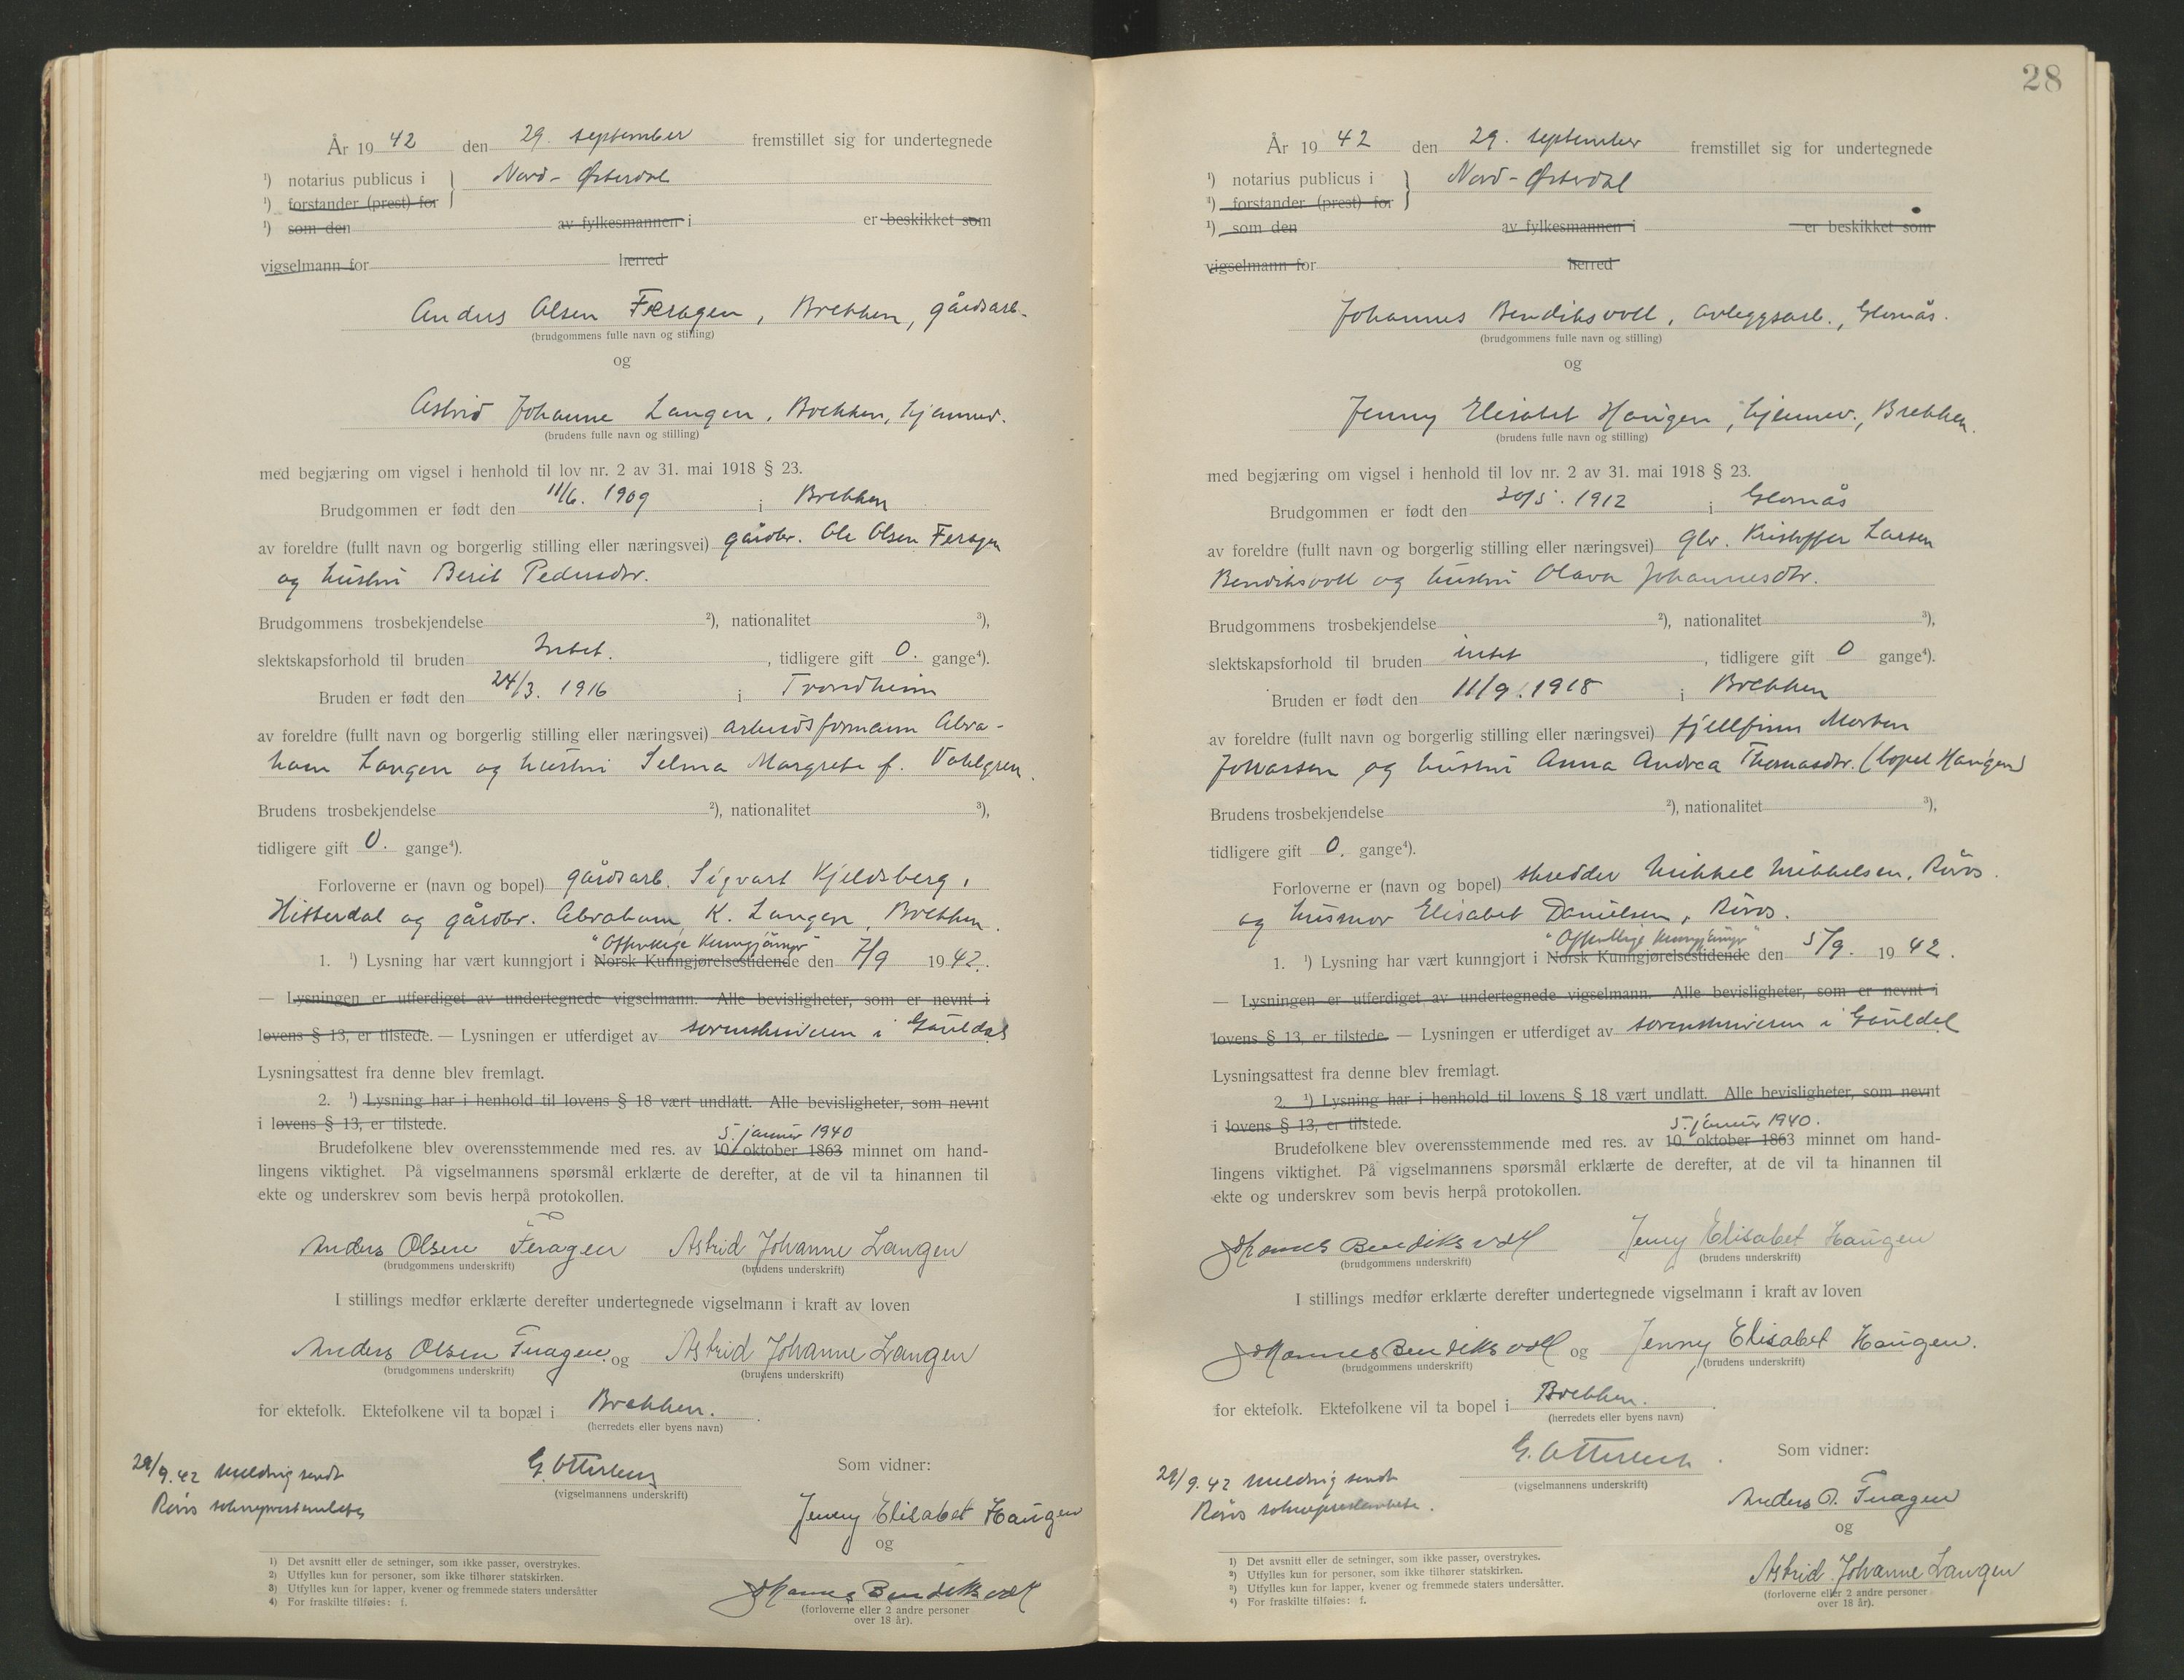 År 19 42 den 29. september fremstillet sig for undertegnede
¹) notarius publicus i } Nord-Østerdal
¹) forstander (prest) for
¹) som den av fylkesmannen i er beskikket som
vigselmann for herred
Anders Olsen Feragen, Brekken, gårdsarb.
(brudgommens fulle navn og stilling)
og
Astrid Johanne Langen, Brekken, hjemmev.
(brudens fulle navn og stilling)
med begjæring om vigsel i henhold til lov nr. 2 av 31. mai 1918 § 23.
Brudgommen er født den 11/6. 1909 i Brekken
av foreldre (fullt navn og borgerlig stilling eller næringsvei) gårdbr. Ole Olsen Feragen
og hustru Berit Pedersdtr.
Brudgommens trosbekjendelse ²), nationalitet ³),
slektskapsforhold til bruden Intet. , tidligere gift 0. gange⁴).
Bruden er født den 24/3. 1916 i Trondheim
av foreldre (fullt navn og borgerlig stilling eller næringsvei) arbeidsformann Abra-
ham Langen og hustru Selma Margrete f. Vahlgren.
Brudens trosbekjendelse ²), nationalitet ³),
tidligere gift 0. gange⁴).
Forloverne er (navn og bopel) gårdsarb. Sigvart Kjeldsberg,
Hitterdal og gårdbr. Abraham K. Langen, Brekken.
"Offentlige Kunngjøringer"
1. ¹) Lysning har vært kunngjort i Norsk Kunngjørelsestidende den 7/9 19 42.
— Lysningen er utferdiget av undertegnede vigselmann. Alle bevisligheter, som er nevnt i
lovens § 13, er tilstede. — Lysningen er utferdiget av sorenskriveren i Gauldal
Lysningsattest fra denne blev fremlagt.
2. ¹) Lysning har i henhold til lovens § 18 vært undlatt. Alle bevisligheter, som nevnt
i lovens § 13, er tilstede.
5. januar 1940
Brudefolkene blev overensstemmende med res. av 10. oktober 1863 minnet om hand-
lingens viktighet. På vigselmannens spørsmål erklærte de derefter, at de vil ta hinannen til
ekte og underskrev som bevis herpå protokollen.
Anders Olsen Feragen Astrid Johanne Langen
(brudgommens underskrift) (brudens underskrift)
I stillings medfør erklærte derefter undertegnede vigselmann i kraft av loven
Anders Olsen Feragen og Astrid Johanne Langen
(brudgommens underskrift) (brudens underskrift)
for ektefolk. Ektefolkene vil ta bopæl i Brekken.
(herredets eller byens navn)
29/9.42 melding sendt
Røros sokneprestembete
G. Otterbech
(vigselmannens underskrift)
Som vidner:
Jenny Elisabet Haugen
og
Johannes Bendiksvoll
(forloverne eller 2 andre personer
over 18 år).
1) Det avsnitt eller de setninger, som ikke passer, overstrykes.
2) Utfylles kun for personer, som ikke tilhører statskirken.
3) Utfylles kun for lapper, kvener og fremmede staters undersåtter
4) For fraskilte tilføies: f.
28
År 19 42 den 29. september fremstillet sig for undertegnede
¹) notarius publicus i } Nord-Østerdal
¹) forstander (prest) for
¹) som den av fylkesmannen i er beskikket som
vigselmann for herred
Johannes Bendiksvoll, anleggsarb., Glomås.
(brudgommens fulle navn og stilling)
og
Jenny Elisabet Haugen, hjemmev., Brekken.
(brudens fulle navn og stilling)
med begjæring om vigsel i henhold til lov nr. 2 av 31. mai 1918 § 23.
Brudgommen er født den 30/5. 1912 i Glomås
av foreldre (fullt navn og borgerlig stilling eller næringsvei) gbr. Kristoffer Larsen
Bendiksvoll og hustru Olava Johannesdtr.
Brudgommens trosbekjendelse ²), nationalitet ³),
slektskapsforhold til bruden intet , tidligere gift 0 gange⁴).
Bruden er født den 11/9.1918 i Brekken
av foreldre (fullt navn og borgerlig stilling eller næringsvei) fjellfinn Morten
Johnassen og hustru Anna Andrea Thomasdtr. (bopel Haugen)
Brudens trosbekjendelse ²), nationalitet ³),
tidligere gift 0. gange⁴).
Forloverne er (navn og bopel) skredder Mikkel Mikkelsen, Røros.
og husmor Elisabet Danielsen, Røros.
"Offentlige Kunngjøringer"
1. ¹) Lysning har vært kunngjort i Norsk Kunngjørelsestidende den 5/9. 19 42.
— Lysningen er utferdiget av undertegnede vigselmann. Alle bevisligheter, som er nevnt i
lovens § 13, er tilstede. — Lysningen er utferdiget av sorenskriveren i Gauldal
Lysningsattest fra denne blev fremlagt.
2. ¹) Lysning har i henhold til lovens § 18 vært undlatt. Alle bevisligheter, som nevnt
i lovens § 13, er tilstede.
5. januar 1940.
Brudefolkene blev overensstemmende med res. av 10. oktober 1863 minnet om hand-
lingens viktighet. På vigselmannens spørsmål erklærte de derefter, at de vil ta hinannen til
ekte og underskrev som bevis herpå protokollen.
Johannes Bendiksvoll Jenny Elisabet Haugen
(brudgommens underskrift) (brudens underskrift)
I stillings medfør erklærte derefter undertegnede vigselmann i kraft av loven
Johannes Bendiksvoll og Jenny Elisabet Haugen.
(brudgommens underskrift) (brudens underskrift)
for ektefolk. Ektefolkene vil ta bopel i Brekken.
(herredets eller byens navn)
29/9.42 melding sendt
Røros sokneprestembete.
G. Otterbech
(vigselmannens underskrift)
Som vidner:
Anders O. Feragen
og
Astrid Johanne Langen
(forloverne eller 2 andre personer
over 18 år).
1) Det avsnitt eller de setninger, som ikke passer, overstrykes.
2) Utfylles kun for personer, som ikke tilhører statskirken.
3) Utfylles kun for lapper, kvener og fremmede staters undersåtter.
4) For fraskilte tilføies: f.